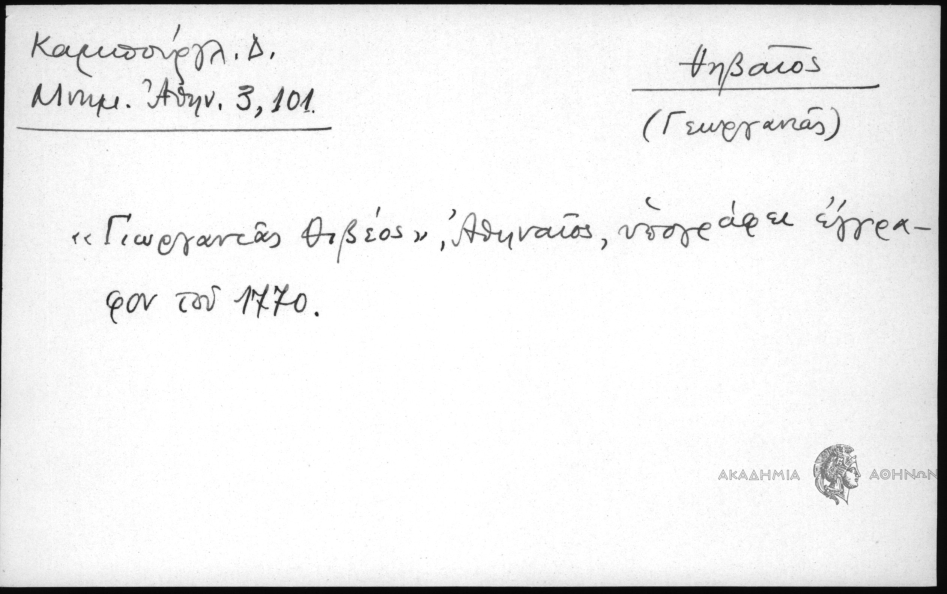 Καμπούργλ. Δ.
Μνημ. Ἀθην. 3, 101.
Θηβαῖος
(Γεωργαντᾶς)
«Γιωργαντᾶς Θιβέος», Ἀθηναῖος, ὑπογράφει ἔγγρα-
φον τοῦ 1770.
ΑΚΑΔΗΜΙΑ ΑΘΗΝΩΝ